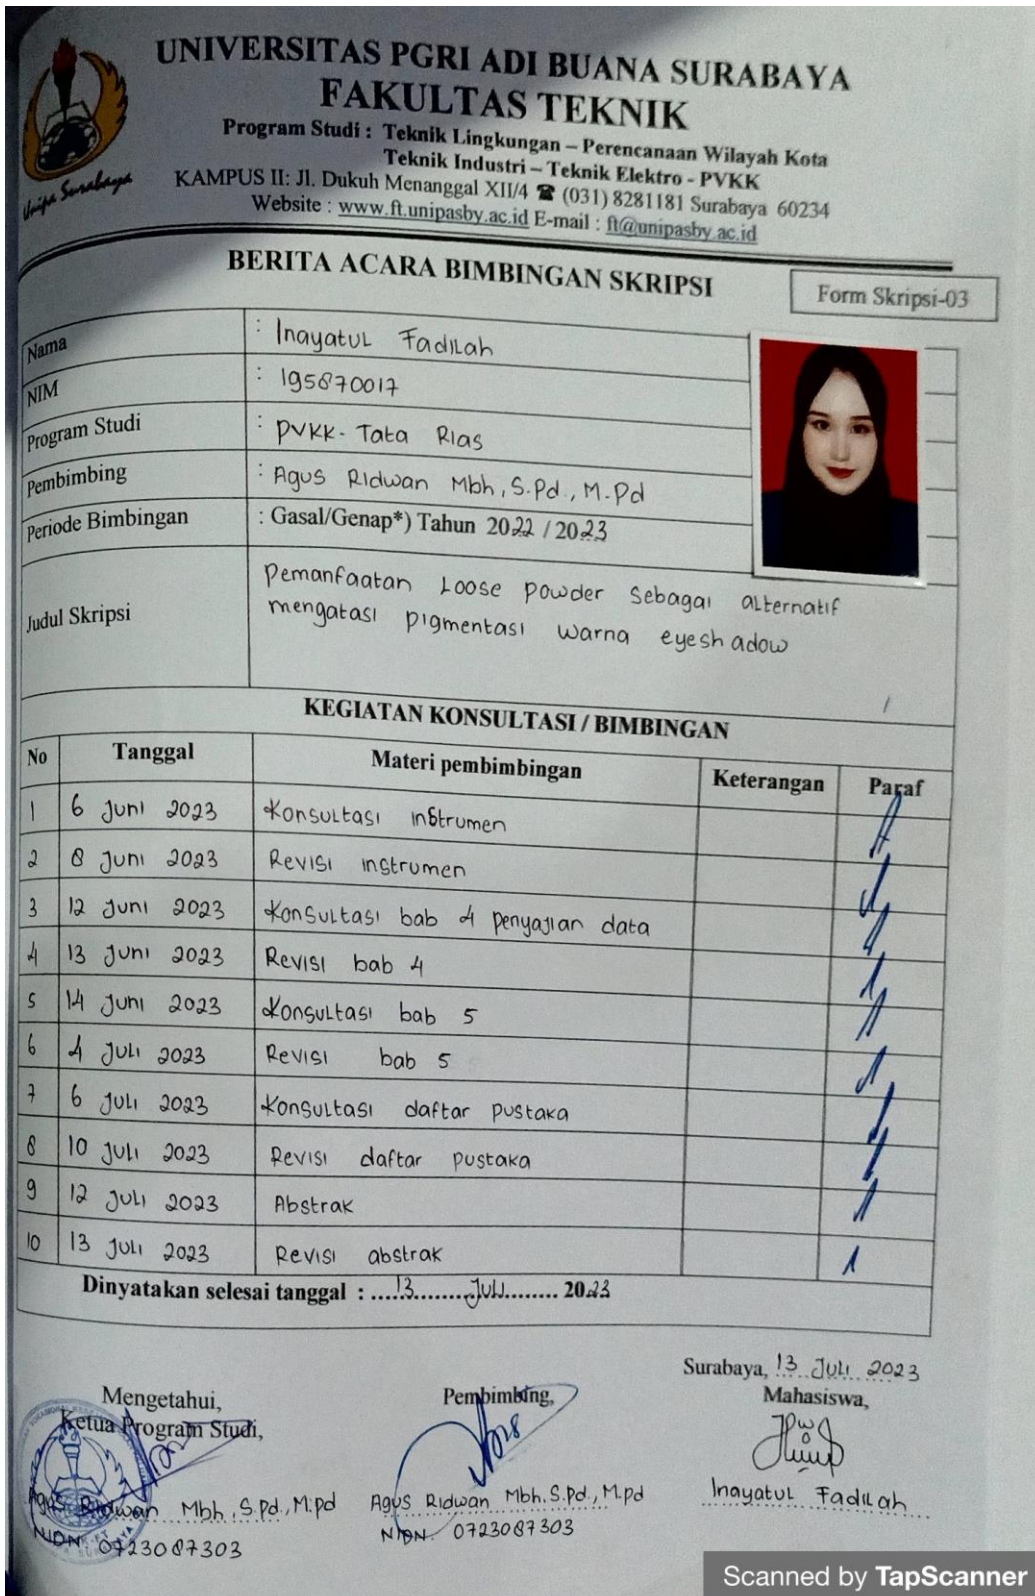 UNIVERSITAS PGRI ADI BUANA SURABAYA
FAKULTAS TEKNIK
Program Studi : Teknik Lingkungan – Perencanaan Wilayah Kota
Teknik Industri – Teknik Elektro - PVKK
KAMPUS II: Jl. Dukuh Menanggal XII/4 ☎ (031) 8281181 Surabaya 60234
Website : www.ft.unipasby.ac.id E-mail : ft@unipasby.ac.id
Unipa Surabaya
BERITA ACARA BIMBINGAN SKRIPSI
Form Skripsi-03
Nama : Inayatul Fadilah
NIM : 195870017
Program Studi : PVKK- Tata Rias
Pembimbing : Agus Ridwan Mbh, S.Pd., M.Pd
Periode Bimbingan : Gasal/Genap*) Tahun 2022 / 2023
Judul Skripsi Pemanfaatan Loose powder sebagai alternatif
mengatasi pigmentasi warna eyeshadow
KEGIATAN KONSULTASI / BIMBINGAN
No Tanggal Materi pembimbingan Keterangan Paraf
1 6 Juni 2023 Konsultasi instrumen
2 8 Juni 2023 Revisi instrumen
3 12 Juni 2023 Konsultasi bab 4 penyajian data
4 13 Juni 2023 Revisi bab 4
5 14 Juni 2023 Konsultasi bab 5
6 4 Juli 2023 Revisi bab 5
7 6 Juli 2023 Konsultasi daftar pustaka
8 10 Juli 2023 Revisi daftar pustaka
9 12 Juli 2023 Abstrak
10 13 Juli 2023 Revisi abstrak
Dinyatakan selesai tanggal : .....13.........Juli........ 2023
Surabaya, 13 Juli 2023
Mengetahui, Pembimbing, Mahasiswa,
Ketua Program Studi,
Agus Ridwan Mbh, S.Pd., M.pd Agus Ridwan Mbh. S.Pd., M.pd Inayatul Fadilah
NIDN 0723087303 NIDN 0723087303
Scanned by TapScanner